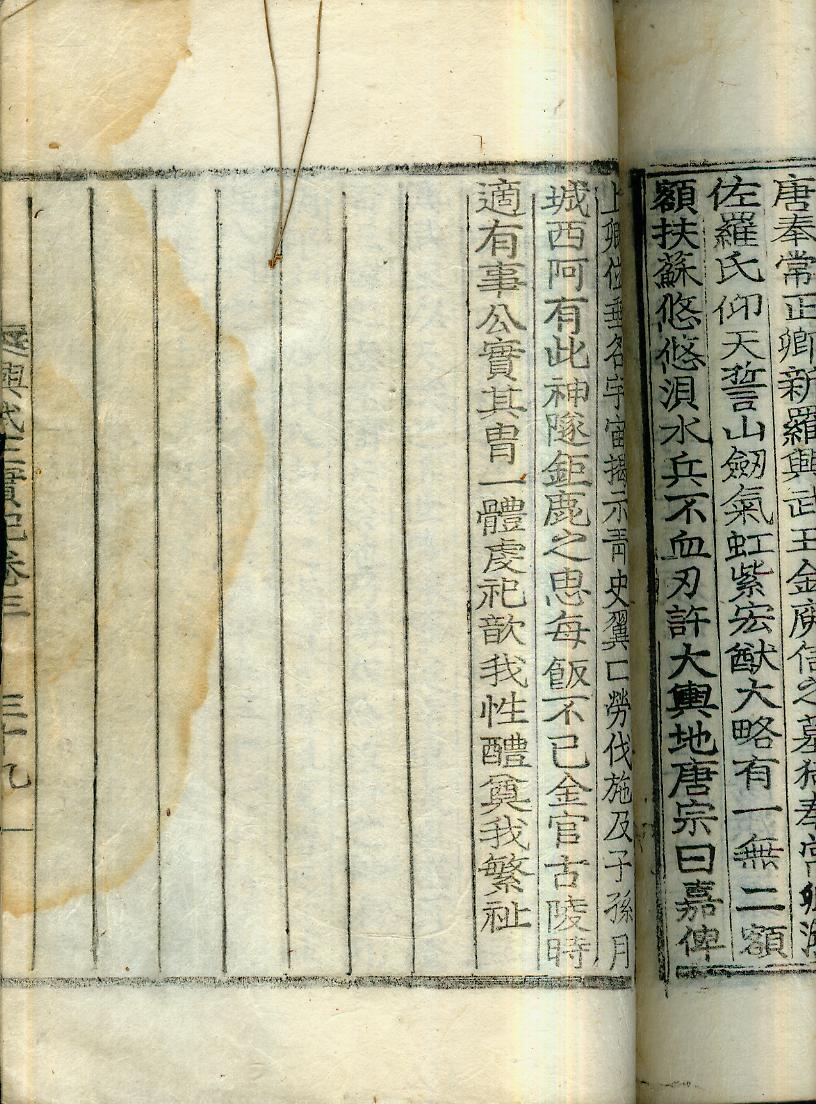 唐奉常正卿新羅興武王金庾信之墓猗奉常卿
佐羅氏仰天誓山劒氣虹紫宏猷大略有一無二額
額扶蘇悠悠浿水兵不血刃許大輿地唐宗曰嘉俾
上卿位垂名宇宙揭示靑史翼亡勞伐施及子孫月
城西阿有此神隧鉅鹿之思每飯不已金官古陵時
適有事公實其胄一體虔祀歆我性醴奠我繁祉
興武王實記卷三 三十九